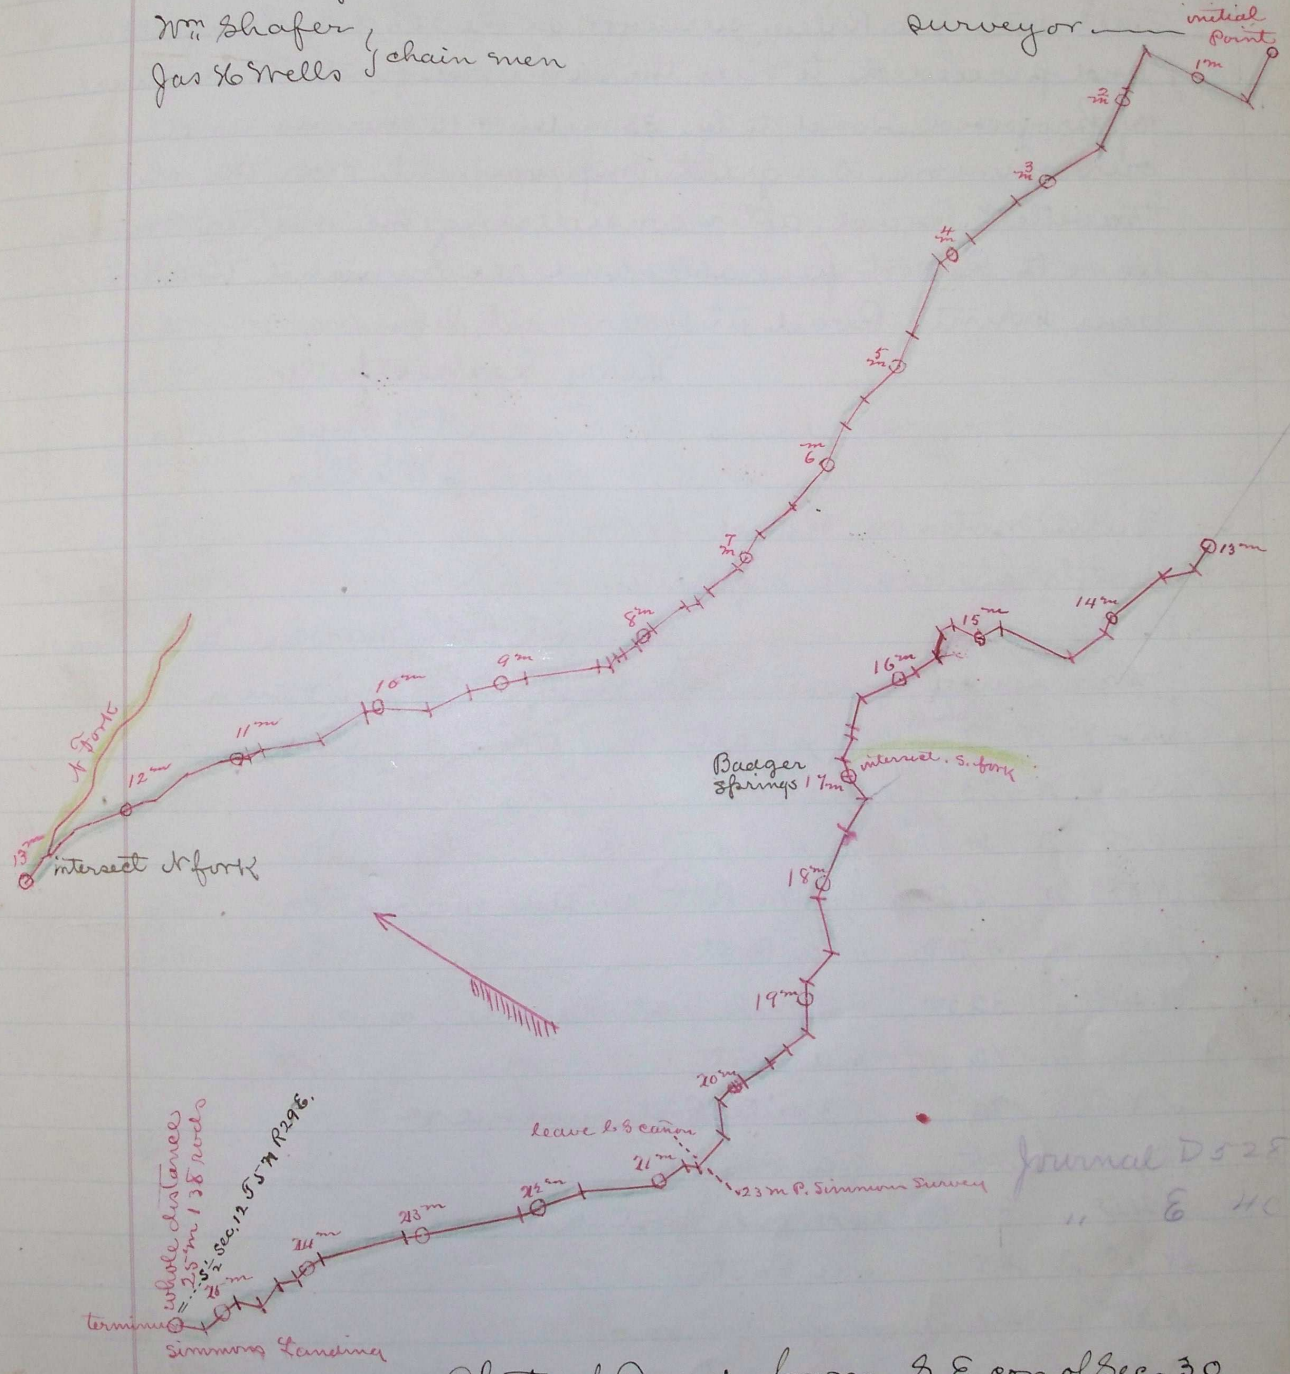 Wm Shafer
Jas H Wells } chain men
surveyor
initial
Point
1m
2
m
3
m
4
m
5
m
m
6
7
m
8m
9m
10m
11m
12m
N Fork
13m
intersect N fork
13m
14m
15m
16m
intersect. S. fork
Badger
Springs
17m
18m
19m
20m
leave L S cañon
21m
23 m P. Simmons Survey
22m
23m
24m
25m
whole distance
25 m 138 rods
S ½ Sec. 12 T 5 N R 29 E.
terminus
Simmons Landing
Journal D 528
" E
S E cor of Sec. 30